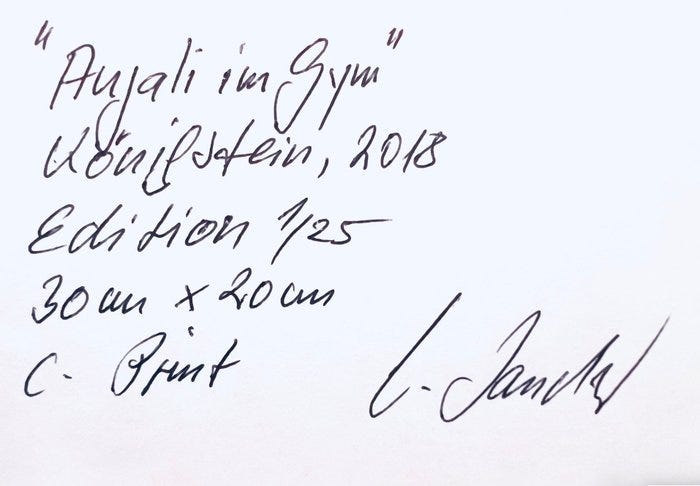 "Anjali im Gym"
Königstein, 2018
Edition 1/25
30cm x 20cm
C. Print